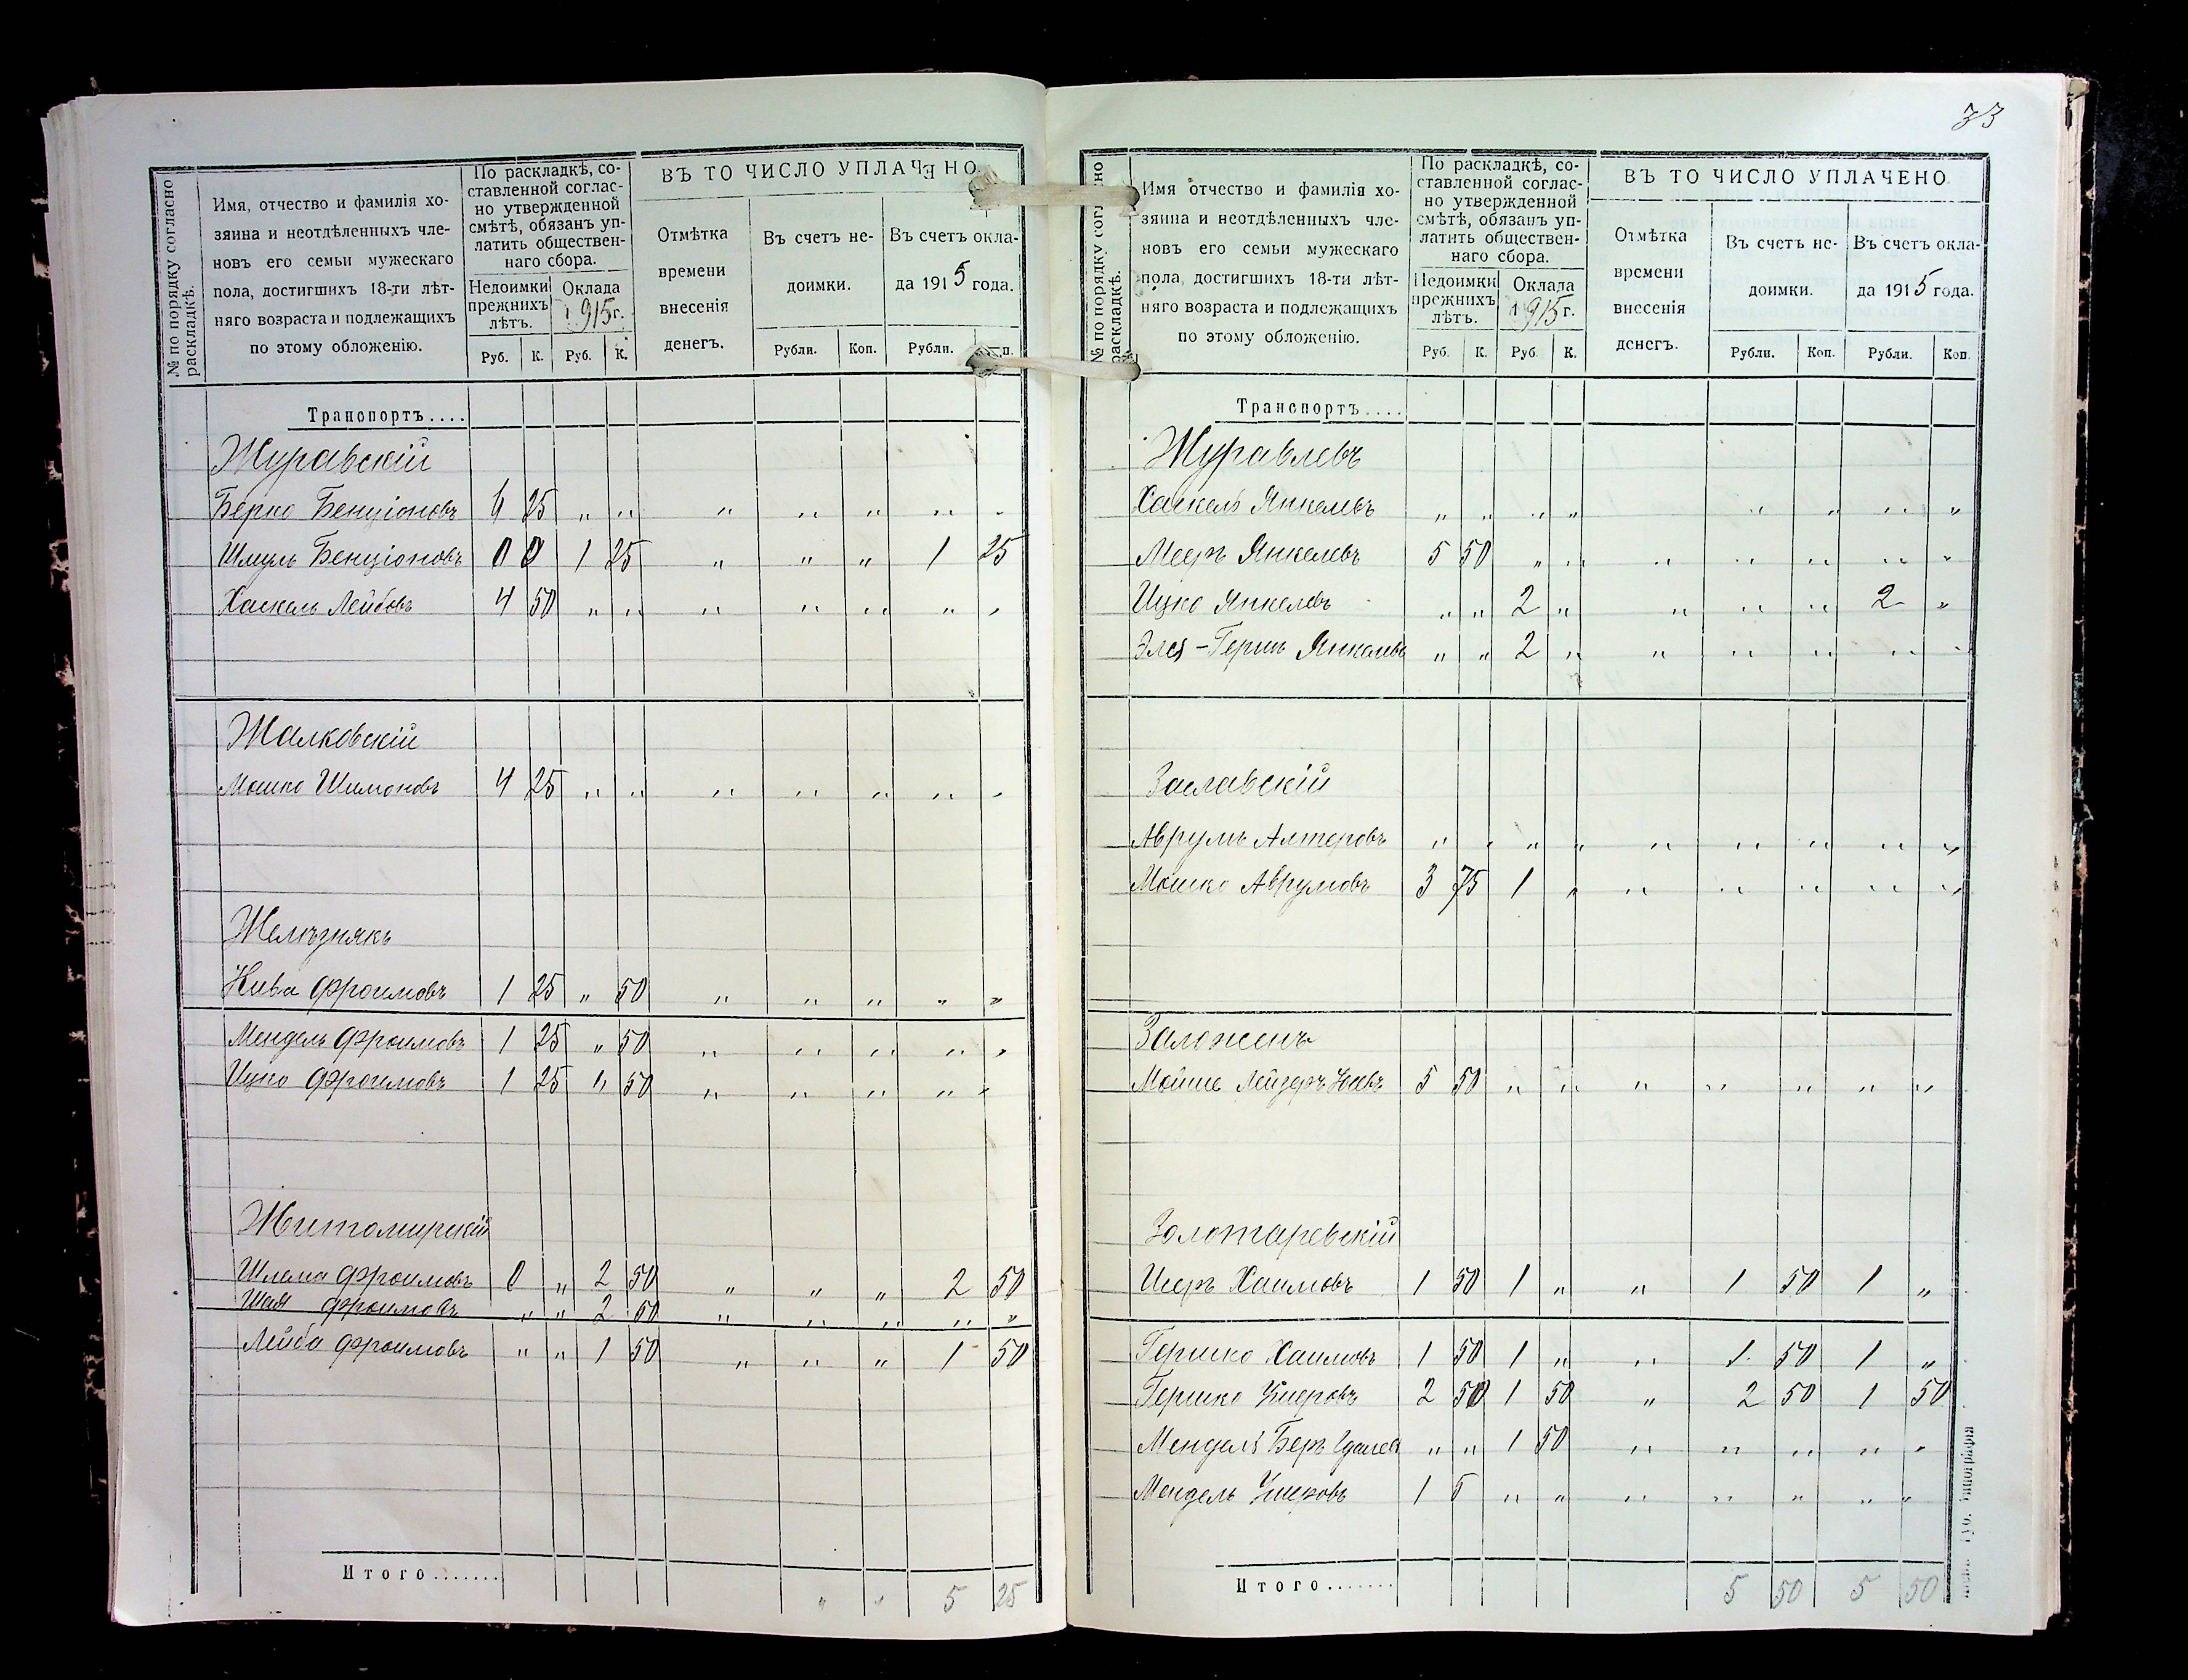 33
№ по порядку согласно раскладкѣ.
Имя, отчество и фамилія хо-
зяина и неотдѣленныхъ чле-
новъ его семьи мужескаго
пола, достигшихъ 18-ти лѣт-
няго возраста и подлежащихъ
по этому обложенію.
По раскладкѣ, со-
ставленной соглас-
но утвержденной
смѣтѣ, обязанъ уп-
латить обществен-
наго сбора.
Недоимки прежнихъ лѣтъ.
Оклада 1915 г.
Руб. К. Руб. К.
ВЪ ТО ЧИСЛО УПЛАЧЕНО
Отмѣтка времени внесенія денегъ.
Въ счетъ не-
доимки.
Въ счетъ окла-
да 1915 года.
Рубли. Коп. Рубли.
Транопортъ....
Журавскій
Берко Бенціоновъ 6 25 " " " " " " "
Шмуль Бенціоновъ 0 0 1 25 " " " 1 25
Хаскель Лейбовъ 4 50 " " " " " " "
Жалковскій
Мошко Шимоновъ 4 25 " " " " " " "
Желѣзнякъ
Кива Фроимовъ 1 25 " 50 " " " " "
Мендель Фроимовъ 1 25 " 50 " " " " "
Ицко Фроимовъ 1 25 " 50 " " " " "
Житомирскій
Шлема Фроимовъ 0 " 2 50 " " " 2 50
Шая Фроимовъ " " 2 50 " " " " "
Лейба Фроимовъ " " 1 50 " " " 1 50
Итого....... " " 5 25
№ по порядку согласно раскладкѣ.
Имя отчество и фамилія хо-
зяина и неотдѣленныхъ чле-
новъ его семьи мужескаго
пола, достигшихъ 18-ти лѣт-
няго возраста и подлежащихъ
по этому обложенію.
По раскладкѣ, со-
ставленной соглас-
но утвержденной
смѣтѣ, обязанъ уп-
латить обществен-
наго сбора.
Недоимки прежнихъ лѣтъ.
Оклада 1915 г.
Руб. К. Руб. К.
ВЪ ТО ЧИСЛО УПЛАЧЕНО.
Отмѣтка времени внесенія денегъ.
Въ счетъ не-
доимки.
Въ счетъ окла-
да 1915 года.
Рубли. Коп. Рубли. Коп.
Транспортъ....
Журавлевъ
Хаскель Янкелевъ " " " " " " " "
Мееръ Янкелевъ 5 50 " " " " " " "
Ицко Янкелевъ " " 2 " " " " 2 "
Герш Янкелевъ " " 2 " " " " " "
Заславскій
Аврумъ Алтеровъ " " " " " " " " "
Мошко Аврумовъ 3 75 1 " " " " " "
Заложенъ
Мойше Лейзеръ 5 50 " " " " " " "
Золотаревскій
Иееръ Хаимовъ 1 50 1 " " 1 50 1 "
Гершко Хаимовъ 1 50 1 " " 1 50 1 "
Гершко 2 50 1 50 " 2 50 1 50
Мендель Беръ " " 1 50 " " " " "
Мендель 1 5 " " " " " " "
Итого....... 5 50 5 50